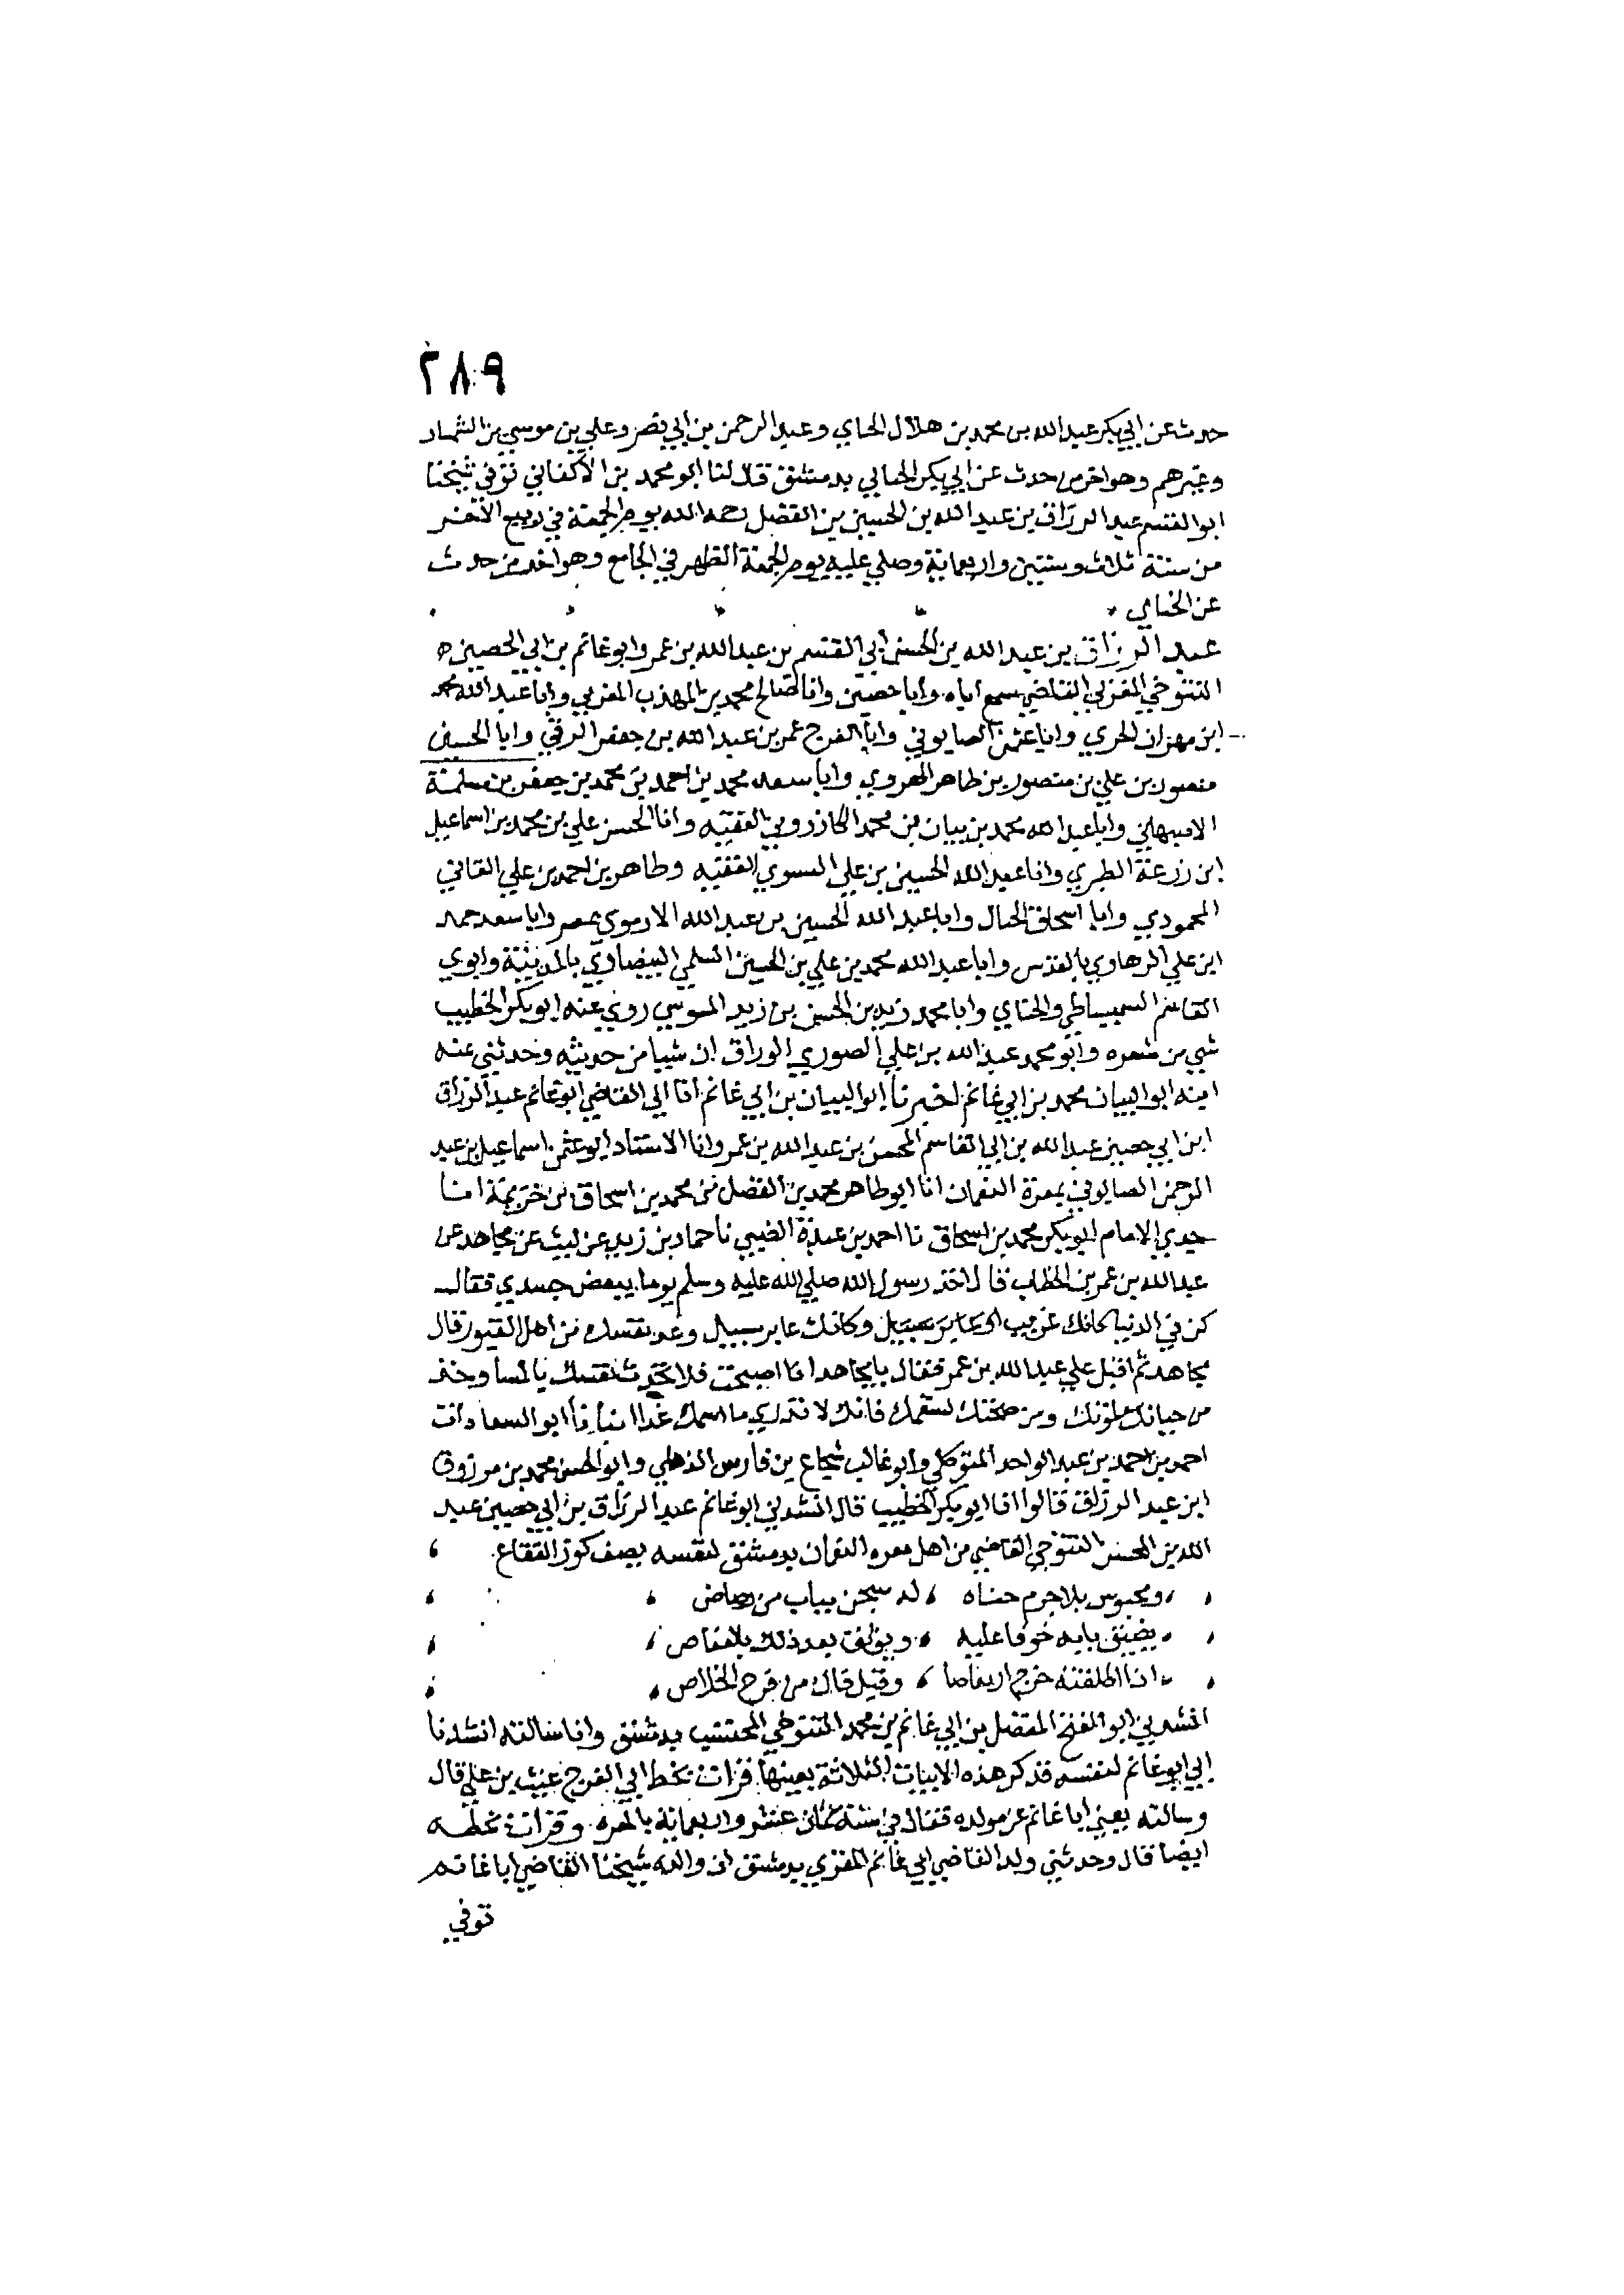 ٢٨٩
حدث عن ابي بكر عبد الله بن محمد بن هلال الحناي وعبد الرحمن بن ابي نصر وعلي بن موسي بن السمسار
وغيرهم وهو اخر من حدث عن ابي بكر الحنايي بدمشق قال لنا ابو محمد بن الاكفاني توفي شيخنا
ابو القسم عبد الرزاق بن عبد الله بن الحسين بن الفضل رحمه الله يوم الجمعة في ربيع الاخر
من سنة ثلاث وستين واربعماية وصلي عليه يوم الجمعة الظهر في الجامع وهو اخر من حدث
عن الحنايي
عبد الرزاق بن عبد الله بن المحسن ابي القسم بن عبد الله بن عمر وابو غانم بن ابي الحصين
التنوخي المعري القاضي سمع اباه وابا حصين وابا صالح محمد بن المهذب المعري وابا عبد الله محمد
ابن مهران الحري وابا عثمن الصابوني وابا الفرج عمر بن عبد الله بن جعفر الرقي وابا الحسين
منصور بن علي بن منصور بن طاهر الهروي وابا سعد محمد بن احمد بن محمد بن جعفر بن سلمة
الاصبهاني وابا عبد الله محمد بن بيان بن محمد الكازروني الفقيه وابا الحسن علي بن محمد بن اسماعيل
ابن زرعة الطبري وابا عبد الله الحسين بن علي النسوي الفقيه وطاهر بن احمد بن علي القايني
المحمودي وابا اسحاق الحبال وابا عبد الله الحسين بن عبد الله الارموي بمصر وابا سعد حمد
ابن علي الرهاوي بالقدس وابا عبد الله محمد بن علي بن الحسين السلمي البيضاوي بالمدينة وابوي
القاسم السميساطي والحناي وابا محمد زيد بن الحسن بن زيد الموسي روي عنه ابو بكر الخطيب
شي من شعره وابو محمد عبد الله بن علي الصوري الوراق ان شيا من حديثه وحدثني عنه
ابنه ابو البيان محمد بن ابي غانم اخبرنا ابو البيان بن ابي غانم انا ابي القاضي ابو غانم عبد الرزاق
ابن ابي حصين عبد الله بن ابي القاسم المحسن بن عبد الله بن عمر وانا الاستاد ابو عثمن اسماعيل بن عبد
الرحمن الصابوني بمعرة النعمان انا ابو طاهر محمد بن الفضل بن محمد بن اسحاق بن خزيمة انبا
جدي الامام ابو بكر محمد بن اسحاق نا احمد بن عبدة الضبي نا حماد بن زيد عن ليث عن مجاهد عن
عبد الله بن عمر بن الخطاب قال اخذ رسول الله صلي الله عليه وسلم يوما ببعض جسدي فقال
كن في الدنيا كانك غريب او عابر سبيل وكانك عابر سبيل وعد نفسك من اهل القبور قال
مجاهد ثم اقبل علي عبد الله بن عمر فقال يا مجاهد اذا اصبحت فلا تحدث نفسك بالمسا وخذ
من حياتك لموتك ومن صحتك لسقمك فانك لا تدري ما اسمك غدا انبانا ابو السعادات
احمد بن احمد بن عبد الواحد المتوكلي وابو غالب شجاع بن فارس الذهلي وابو الحسن محمد بن مرزوق
ابن عبد الرزاق قالوا انا ابو بكر الخطيب قال انشدني ابو غانم عبد الرزاق بن ابي حصين عبد
الله بن المحسن التنوخي القاضي من اهل معره النعمان بدمشق لنفسه يصف كوز الفقاع
ومحبوس بلا جرم جناه له سجن بباب من رصاص
يضيق بابه خوفا عليه ويوثق بعد ذلك بالعفاص
اذا اطلقته خرج ارتقاصا وقبل فاك من فرح الخلاص
انشدني ابو الفتح المفضل بن ابي غانم بن محمد التنوخي المحتسب بدمشق وانا سالته انشدنا
ابي ابو غانم لنفسه فذكر هذه الابيات الثلاثة بعينها قرات بخط ابي الفرج غيث بن علي قال
وسالته يعني ابا غانم عن مولده فقال في سنة ثمان عشر واربعماية بالمعرة وقرات بخطه
ايضا قال وحدثني ولد القاضي ابي غانم المعري بدمشق ان والده شيخنا القاضي ابا غانم
توفي